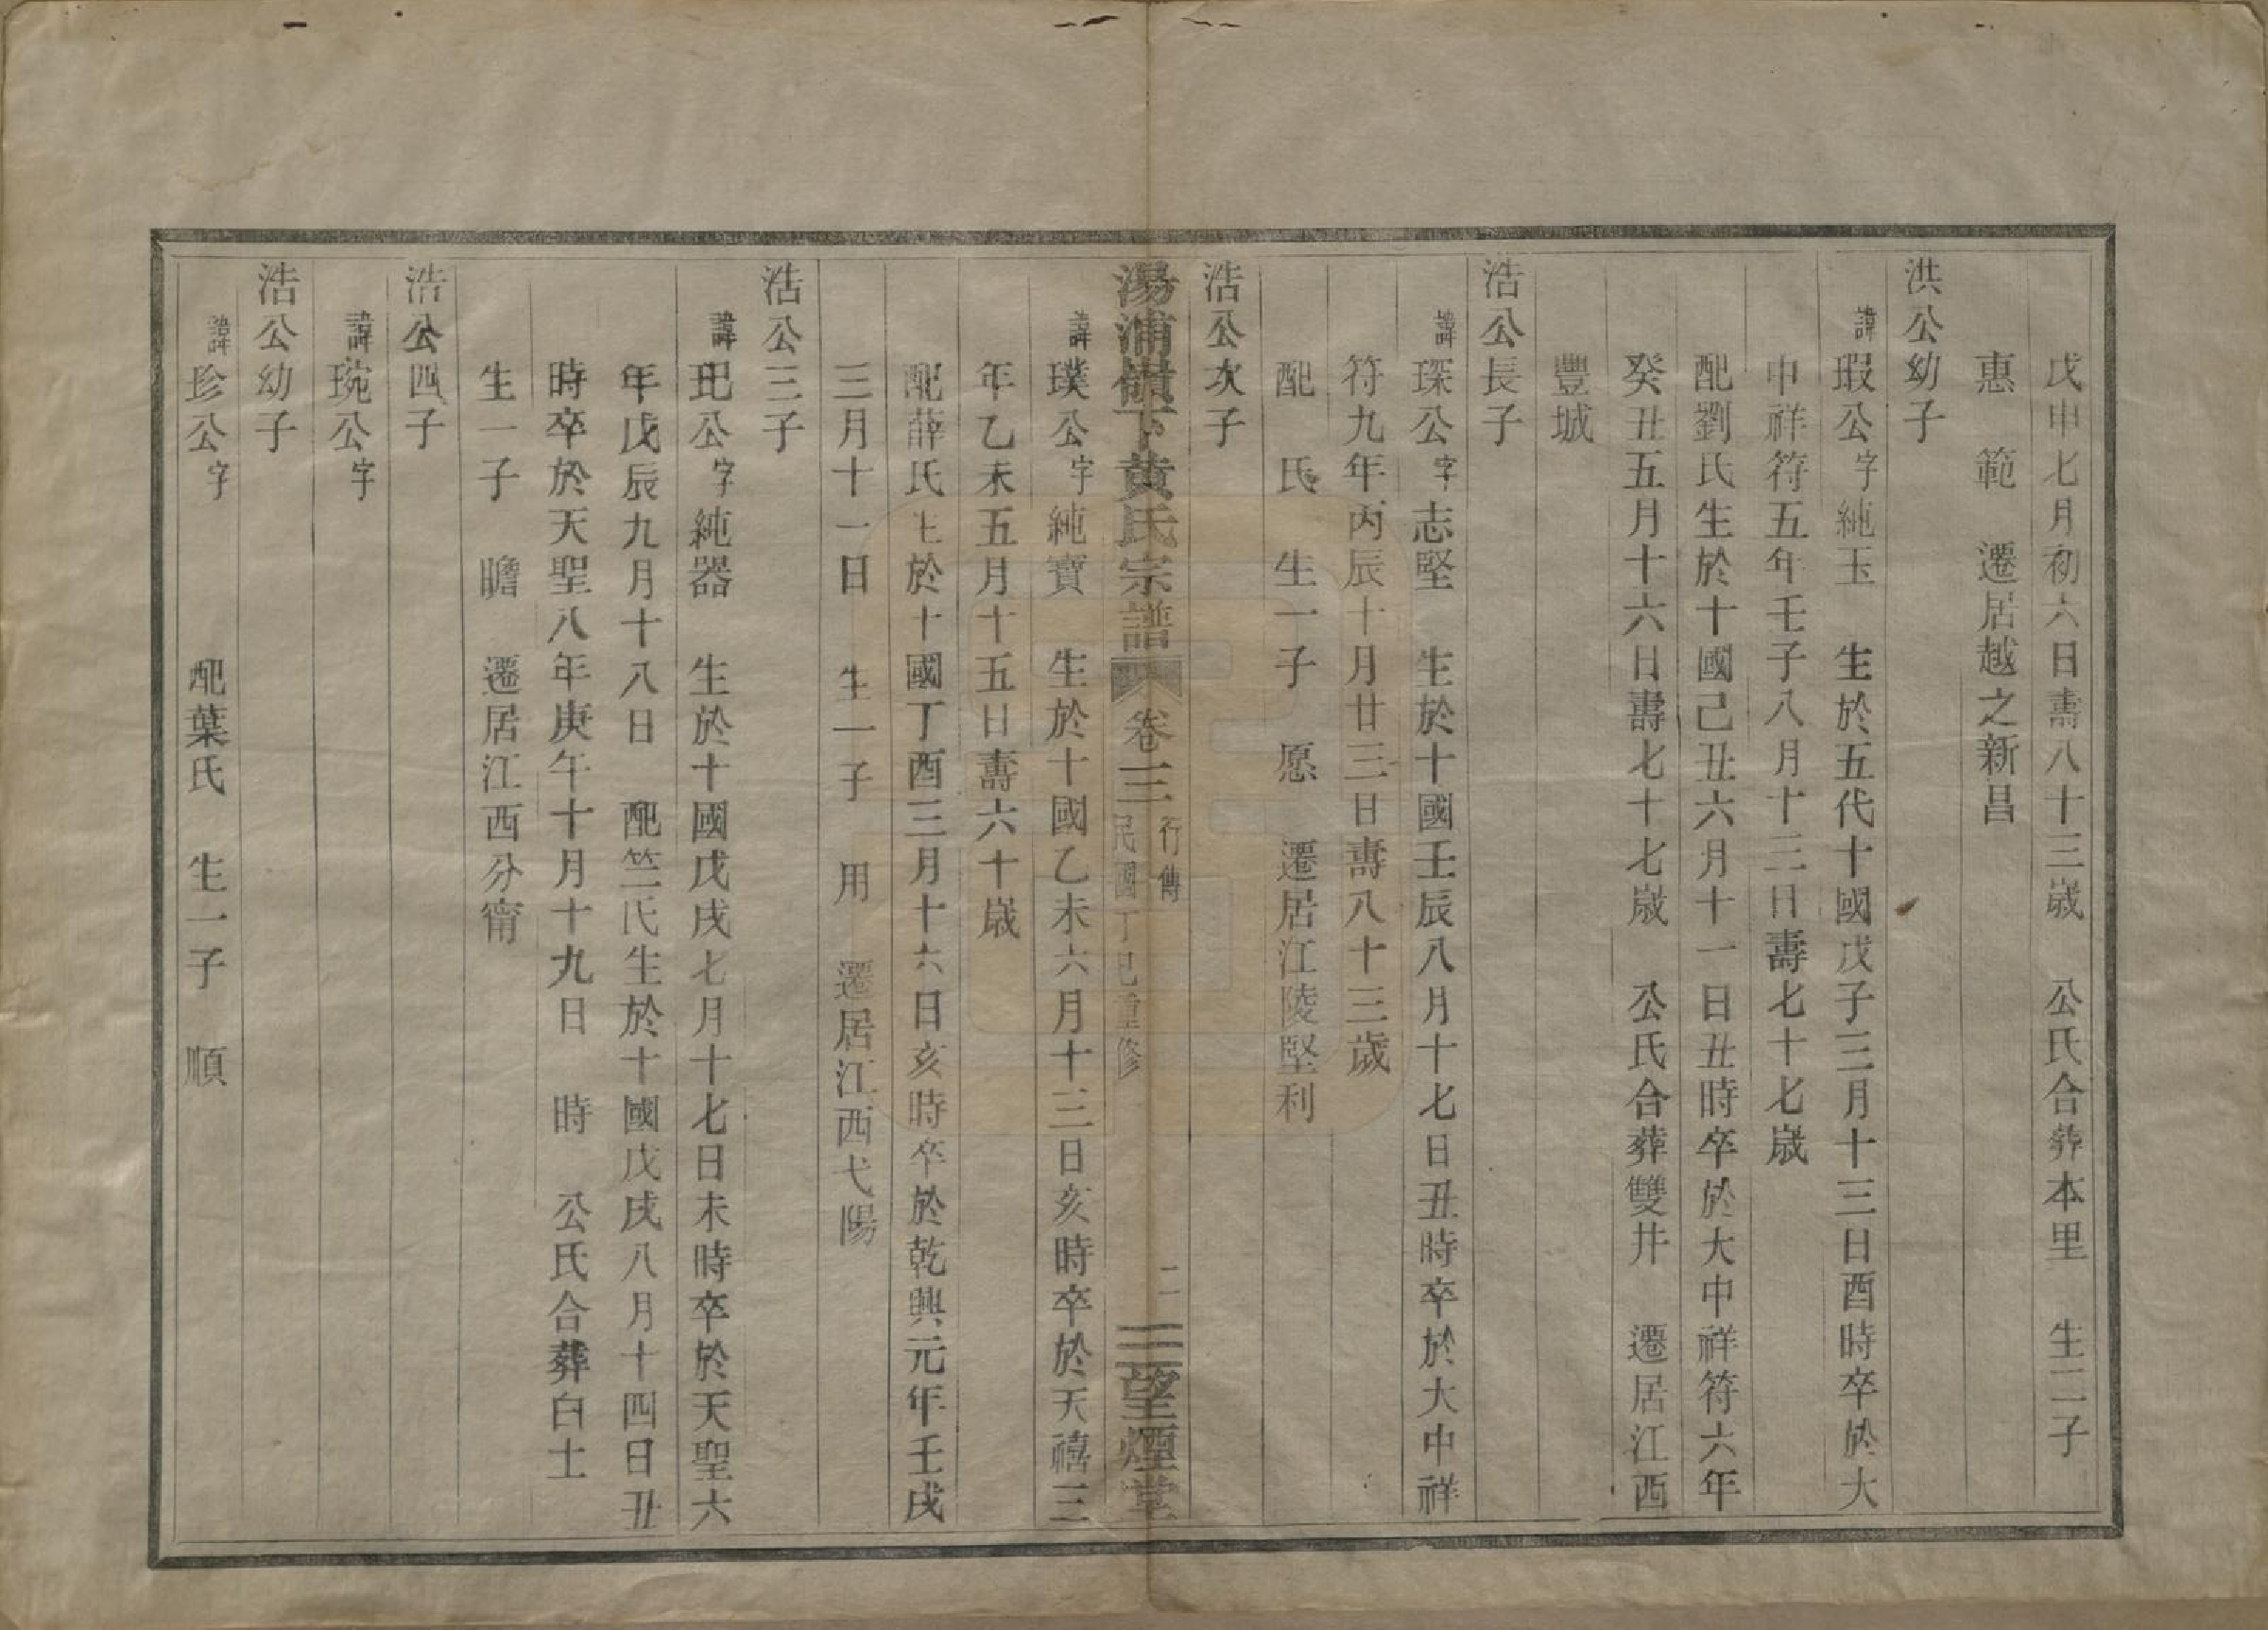 戊申七月初六日壽八十三歲　公氏合葬本里　生二子
惠　範　遷居越之新昌
洪公幼子
諱瑕公字純玉　生於五代十國戊子三月十三日酉時卒於大
中祥符五年壬子八月十二日壽七十七歲
配劉氏生於十國己丑六月十一日丑時卒於大中祥符六年
癸丑五月十六日壽七十七歲　公氏合葬雙井　遷居江西
豐城
浩公長子
諱琛公字志堅　生於十國壬辰八月十七日丑時卒於大中祥
符九年丙辰十月廿三日壽八十三歲
配　氏　生一子　愿　遷居江陵堅利
浩公次子
湯浦嶺下黃氏宗譜　卷三　行傳　民國丁巳重修　二　望煙堂
諱璞公字純寶　生於十國乙未六月十三日亥時卒於天禧三
年乙未五月十五日壽六十歲
配薛氏生於十國丁酉三月十六日亥時卒於乾興元年壬戌
三月十一日　生一子　用　遷居江西弋陽
浩公三子
諱玘公字純器　生於十國戊戌七月十七日未時卒於天聖六
年戊辰九月十八日　配竺氏生於十國戊戌八月十四日丑
時卒於天聖八年庚午十月十九日　時　公氏合葬白土
生一子　瞻　遷居江西分甯
浩公四子
諱琬公字
浩公幼子
諱珍公字　配葉氏　生一子　順